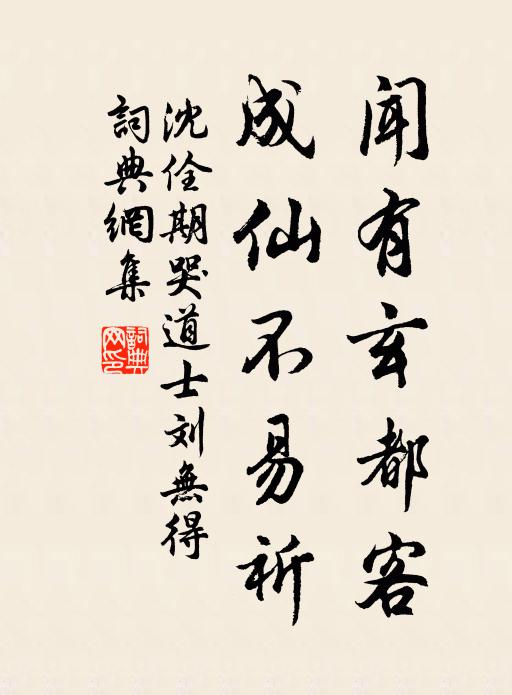 闻有玄都客
成仙不易祈
沈佺期哭道士刘無得
詞典網集
詞典
网印